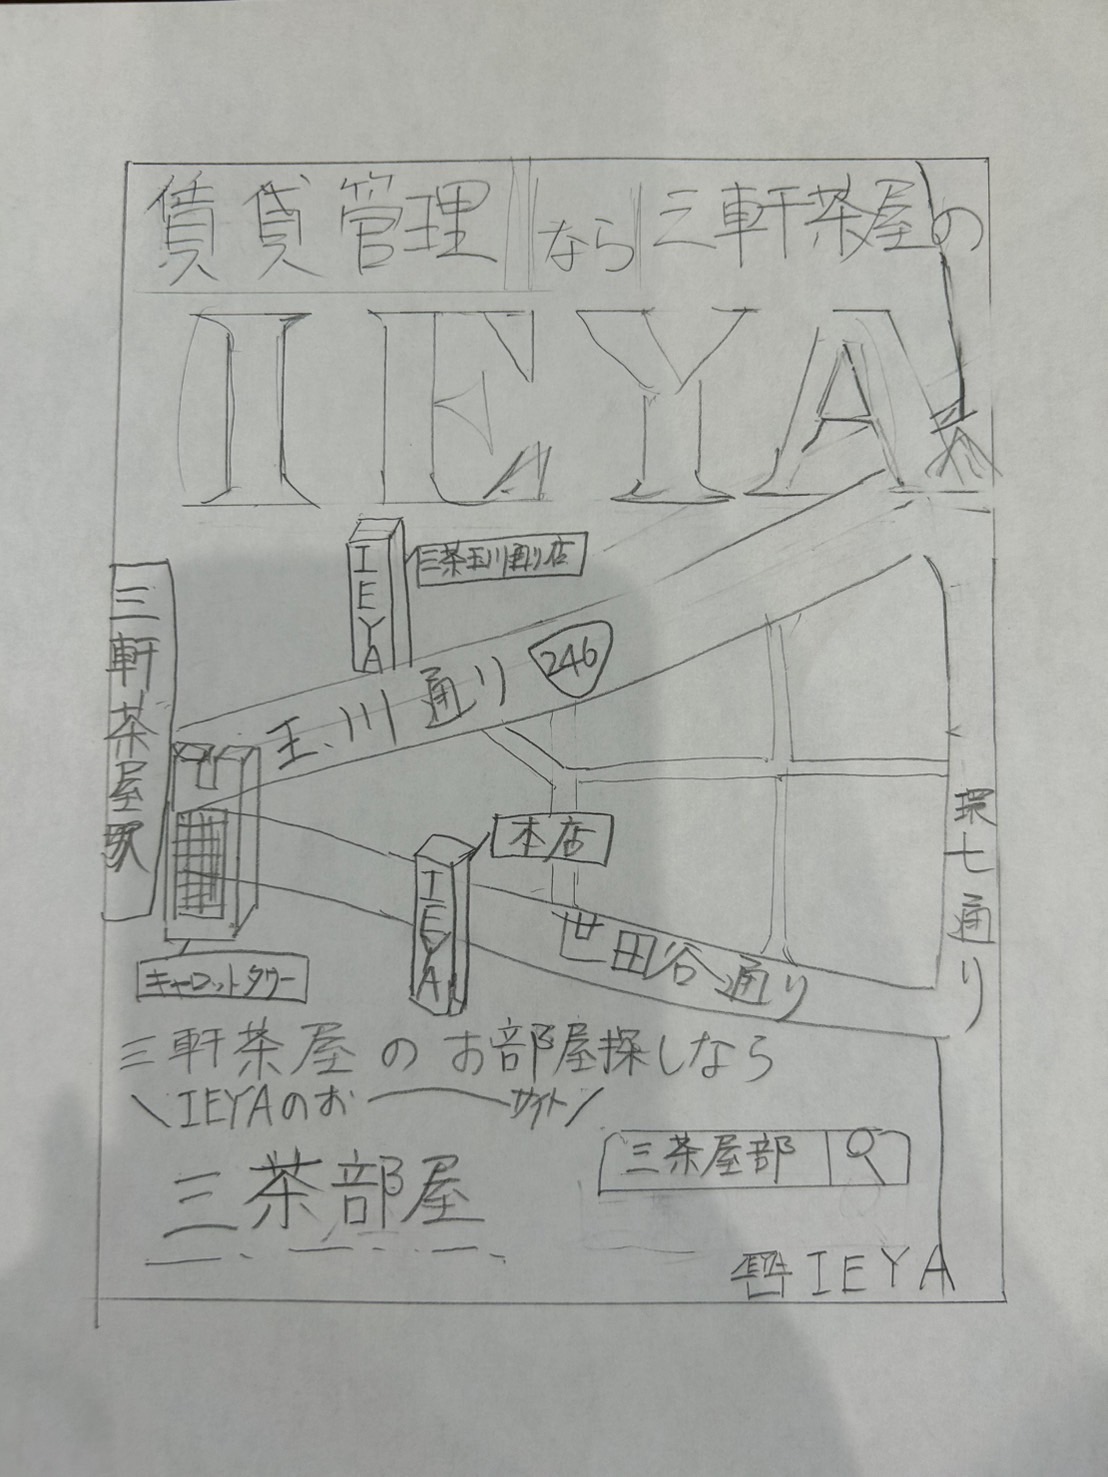 賃貸管理なら三軒茶屋の
IEYA
IEYA
三茶玉川通り店
三軒茶屋駅
玉川通り
246
本店
IEYA
環七通り
世田谷通り
キャロットタワー
三軒茶屋のお部屋探しなら
\IEYAのお サイト/
三茶部屋
三茶屋部
IEYA